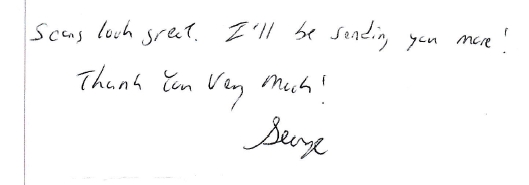 Scans look great. I'll be sending you more!
Thank You Very Much!
George